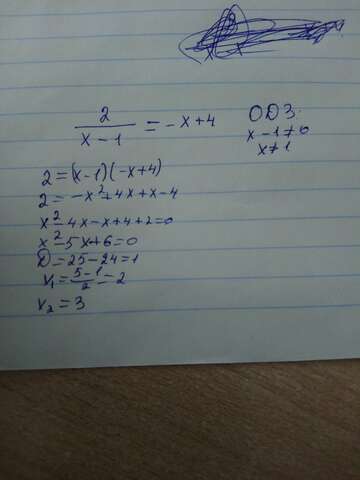 2/(x-1) = -x+4
ОДЗ:
x-1≠0
x≠1
2=(x-1)(-x+4)
2=-x²+4x+x-4
x²-4x-x+4+2=0
x²-5x+6=0
D=25-24=1
x₁=(5-1)/2=2
x₂=3